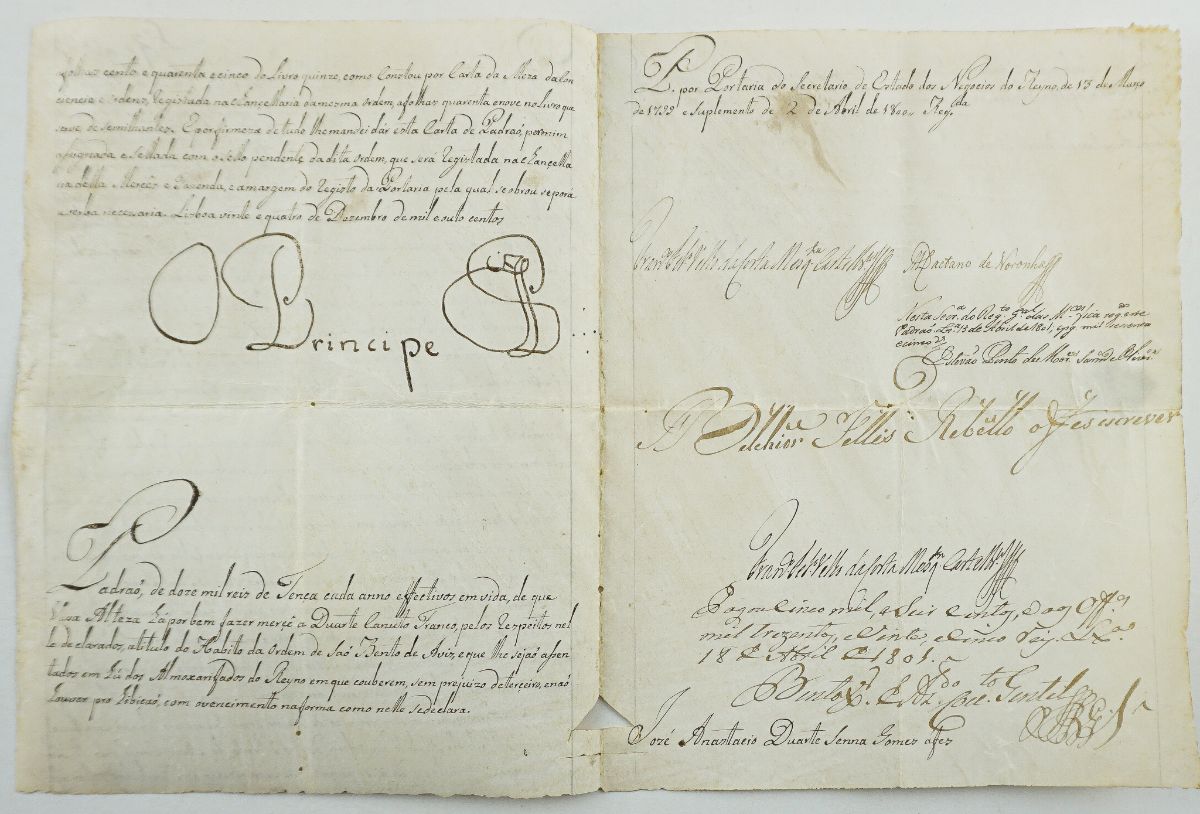 afolhas cento e quarenta e cinco do Livro quinze, como Constou por Carta da Meza da Con
sciencia e Ordens, Registada na Chançellaria da mesma Ordem, afolhas quarenta e nove no Livro que
serve de semilhantes. E por firmeza de tudo lhe mandei dár esta Carta de Padraõ, por mim
assignada e Sellada com o sello pendente da dita Ordem, que será Registada na Chançella
ria della Mercês e Fazenda, e a margem do Registo da Portaria pela qual se obrou se porá
a verba necesaria. Lisboa vinte e quatro de Dezembro de mil e outo centos
O Principe
Padraõ, de doze mil reis de Tença cada anno effectivos em vida, de que
Vossa Alteza há por bem fazer mercê a Duarte Canuto Franco, pelos Respeitos nel
le declarados, a titulo do Habito da Ordem de Saõ Bento de Aviz, e que lhe sejaõ assen
tados em hũ dos Almoxarifados do Reyno em que couberem, sem prejuizo de terceiro, e naõ
houver prohibiçaõ, com o vencimento na forma como nelle se declara.
P. por Portaria do Secretario de Estado dos Negocios do Reyno, de 13 de Março
de 1799 e suplemento de 2 de Abril de 1800. Reg.da
Caetano de Noronha
Nesta Secr.a do Reg.to g.al das M.ces fica reg.do este
Padraõ. Lx.a 13 de Abril de 1801, e pg. mil
e cinco r.s
Estevaõ Pinto de
Belchior Tellis Rebello o fes escrever
Pagou cinco mil, e seis centos, e aos Off.es
mil trezentos, e vinte, e cinco reis. Lx.a
18 de Abril de 1801.
José Anastacio Duarte Senna Gomes a fes